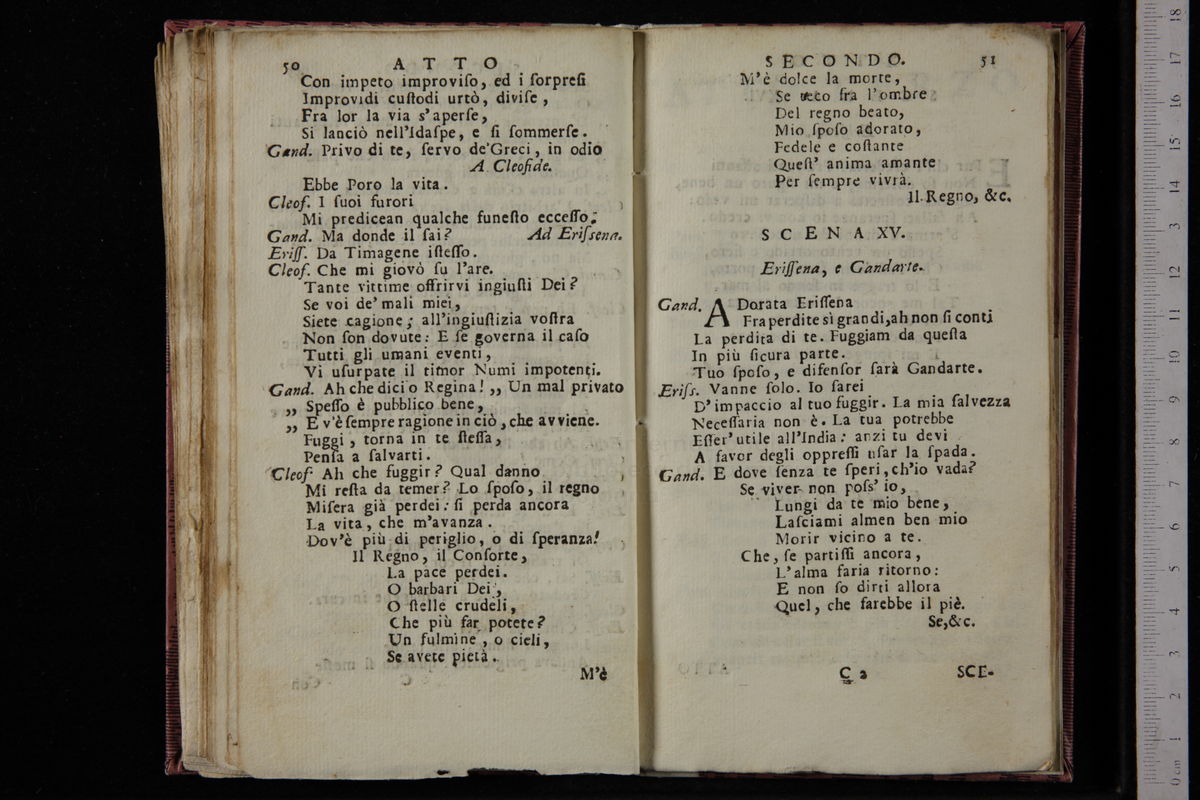 50 ATTO
Con impeto improviſo, ed i ſorpreſi
Improvidi cuſtodi urtò, diviſe,
Fra lor la via s'aperſe,
Si lanciò nell'Idaſpe, e ſi ſommerſe.
Gand. Privo di te, ſervo de'Greci, in odio
A Cleofide.
Ebbe Poro la vita.
Cleof. I ſuoi furori
Mi predicean qualche funeſto ecceſſo;
Gand. Ma donde il ſai? Ad Eriſsena.
Eriſſ. Da Timagene iſteſſo.
Cleof. Che mi giovò ſu l'are.
Tante vittime offrirvi ingiuſti Dei?
Se voi de'mali miei,
Siete cagione; all'ingiuſtizia voſtra
Non ſon dovute: E ſe governa il caſo
Tutti gli umani eventi,
Vi uſurpate il timor Numi impotenti.
Gand. Ah che dici o Regina! ,, Un mal privato
,, Speſſo è pubblico bene,
,, E v'è ſempre ragione in ciò, che avviene.
Fuggi, torna in te ſteſſa,
Penſa a ſalvarti.
Cleof. Ah che fuggir? Qual danno
Mi reſta da temer? Lo ſpoſo, il regno
Miſera già perdei: ſi perda ancora
La vita, che m'avanza.
Dov'è più di periglio, o di ſperanza!
Il Regno, il Conſorte,
La pace perdei.
O barbari Dei,
O ſtelle crudeli,
Che più far potete?
Un fulmine, o cieli,
Se avete pietà.
M'è
SECONDO. 51
M'è dolce la morte,
Se teco fra l'ombre
Del regno beato,
Mio ſpoſo adorato,
Fedele e coſtante
Queſt' anima amante
Per ſempre vivrà.
Il Regno, &c.
SCENA XV.
Eriſſena, e Gandarte.
Gand. ADorata Eriſſena
Fra perdite sì grandi, ah non ſi conti
La perdita di te. Fuggiam da queſta
In più ſicura parte.
Tuo ſpoſo, e difenſor ſarà Gandarte.
Eriſs. Vanne ſolo. Io ſarei
D'impaccio al tuo fuggir. La mia ſalvezza
Neceſſaria non è. La tua potrebbe
Eſſer'utile all'India: anzi tu devi
A favor degli oppreſſi uſar la ſpada.
Gand. E dove ſenza te ſperi, ch'io vada?
Se viver non poſs' io,
Lungi da te mio bene,
Laſciami almen ben mio
Morir vicino a te.
Che, ſe partiſſi ancora,
L'alma faria ritorno:
E non ſo dirti allora
Quel, che farebbe il piè.
Se, &c.
C 2 SCE-
0 cm 1 2 3 4 5 6 7 8 9 10 11 12 13 14 15 16 17 18